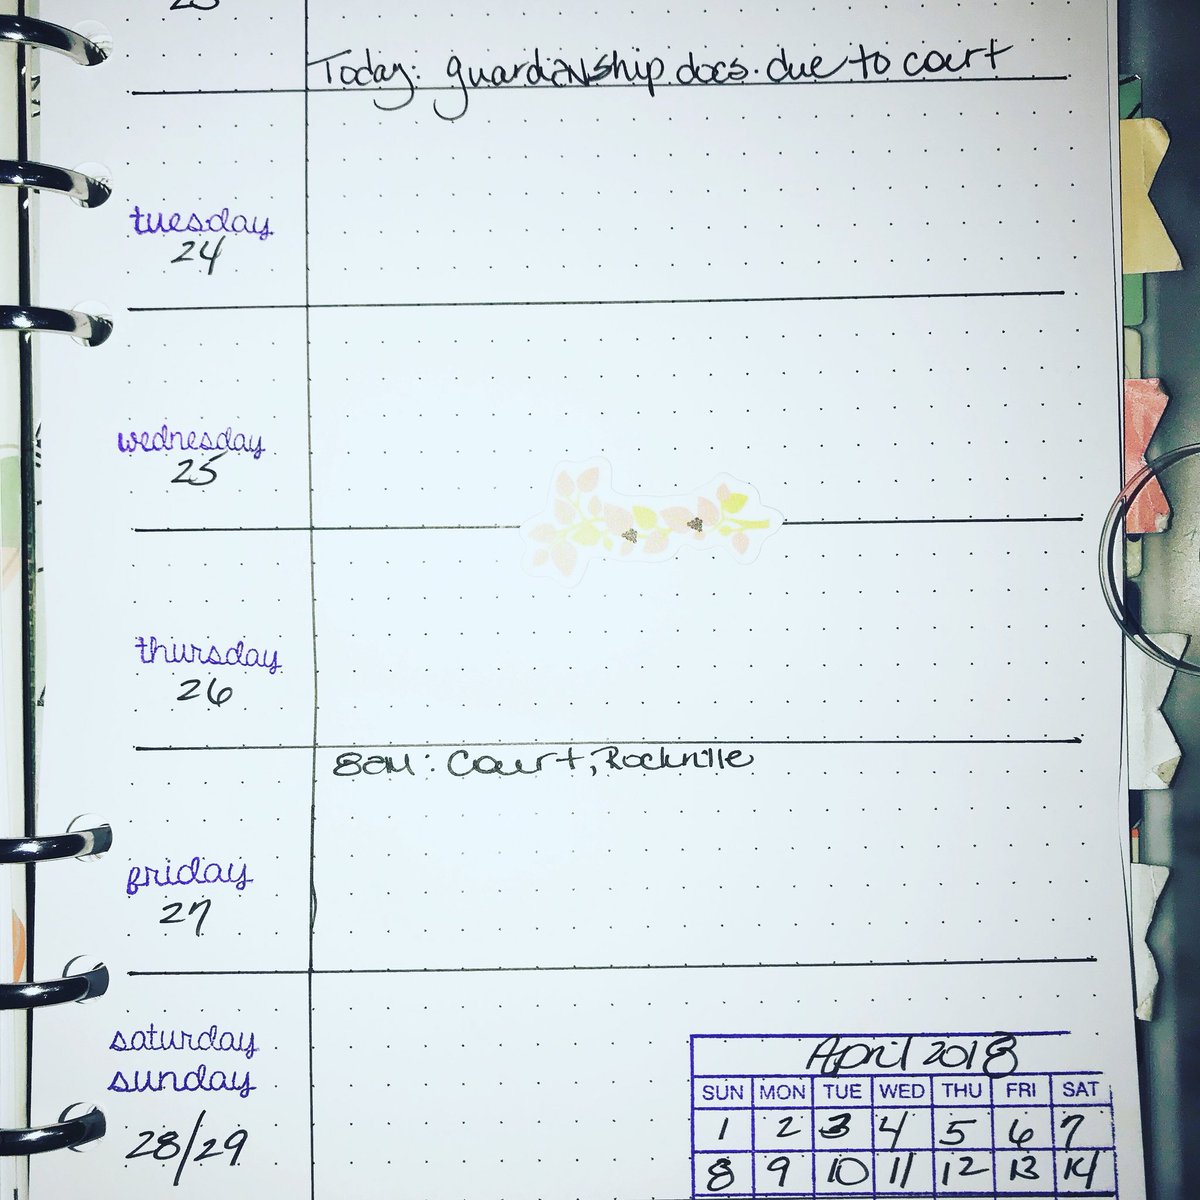 Today: guardianship docs. due to court
tuesday
24
wednesday
25
thursday
26
8am: Court, Rockville
friday
27
saturday
sunday
28/29
April 2018
SUN MON TUE WED THU FRI SAT
1 2 3 4 5 6 7
8 9 10 11 12 13 14